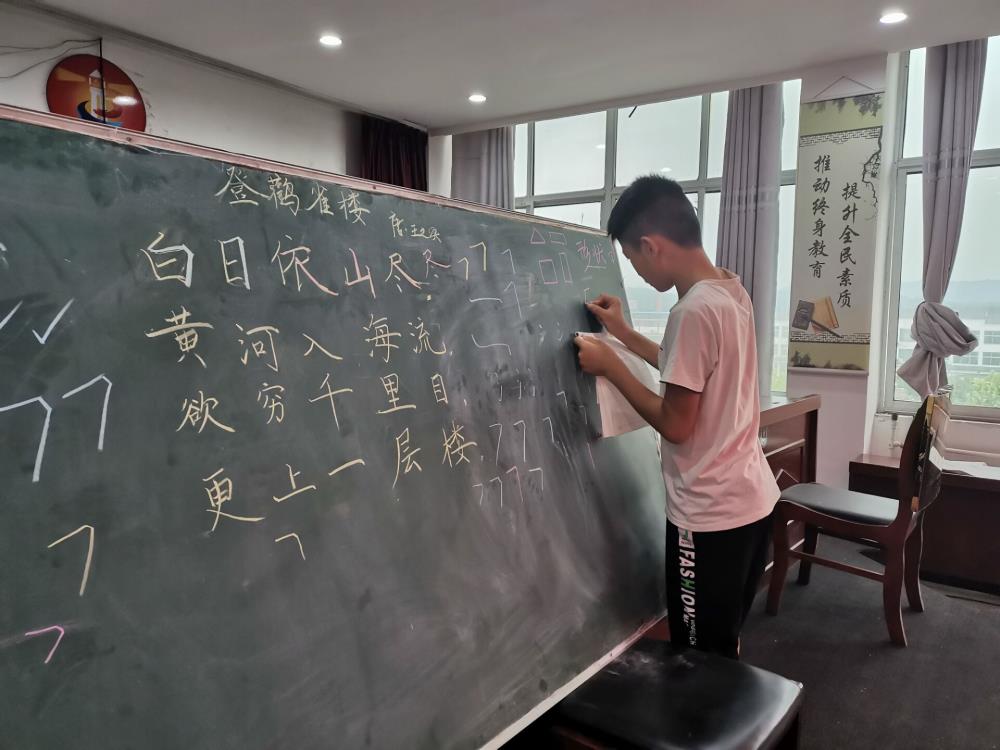 登鹳雀楼
唐·王之涣
白日依山尽
黄河入海流,
欲穷千里目,
更上一层楼.
形状
提升全民素质
推动终身教育
FASHION